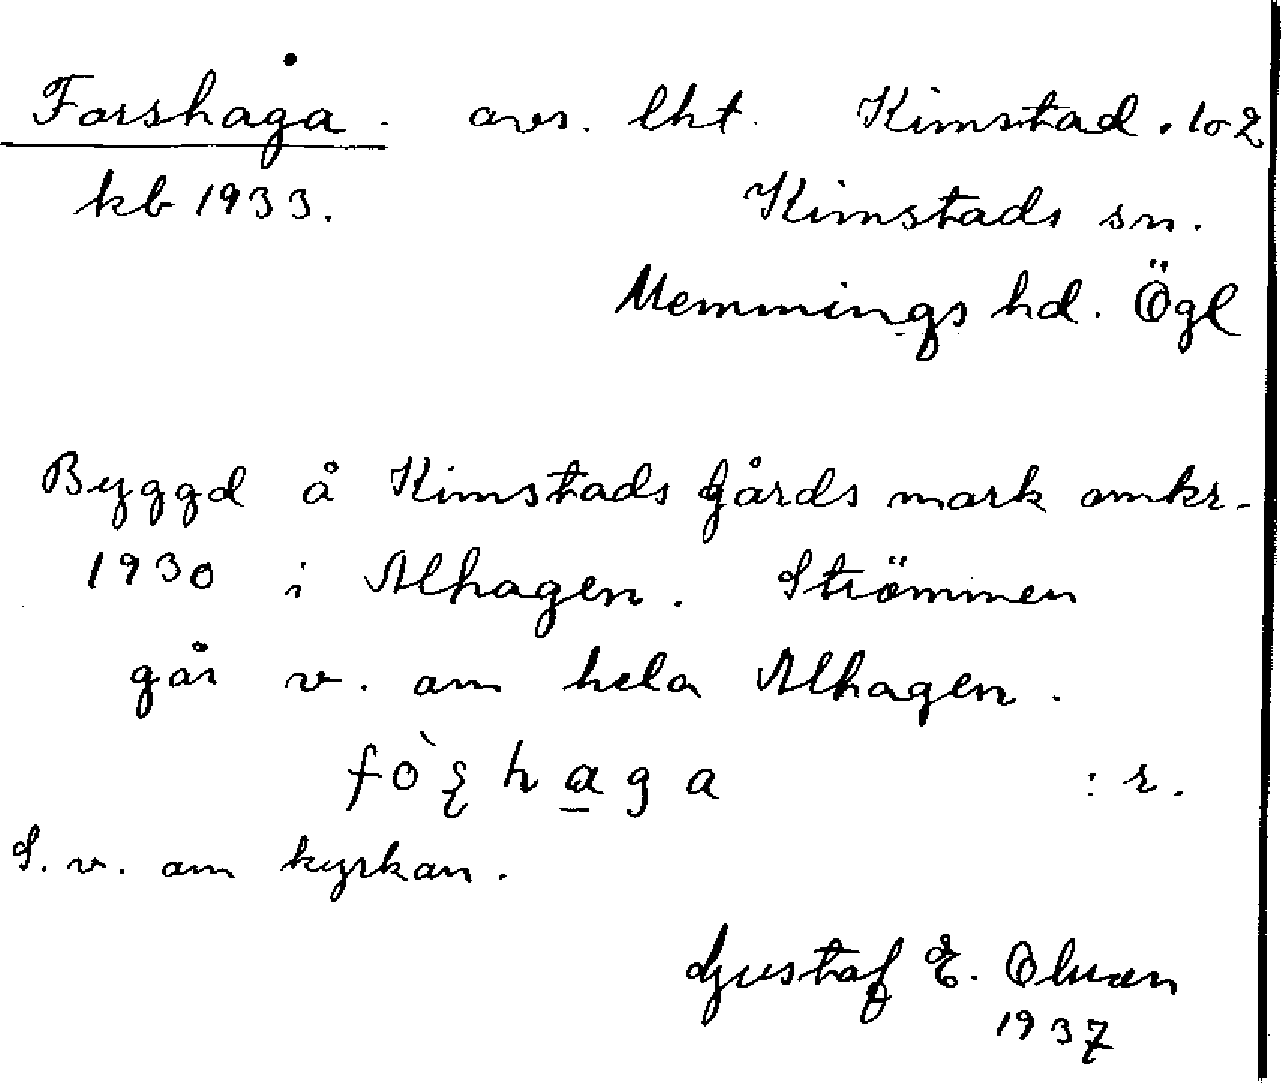 Forshaga. avs. lht. Kimstad. 1o2
kb 1933. Kimstads sn.
Memmings hd. Ögl
Byggd å Kimstads gårds mark omkr.
1930 i Alhagen. Strömmen
går v. om hela Alhagen.
fò ʂ h a g a : r.
S. v. om kyrkan.
Gustaf E. Olsson
1937